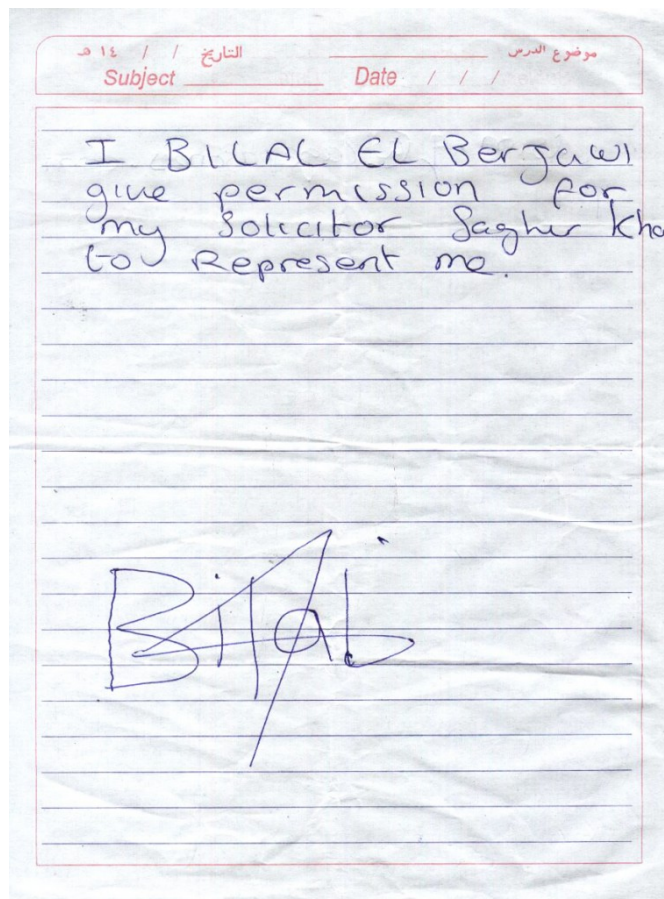 التاريخ / / ١٤ هـ موضوع الدرس
Subject Date / / /
I BILAL EL Berjawi
give permission for
my Solicitor Saghir Kha
to Represent me.
Bilal